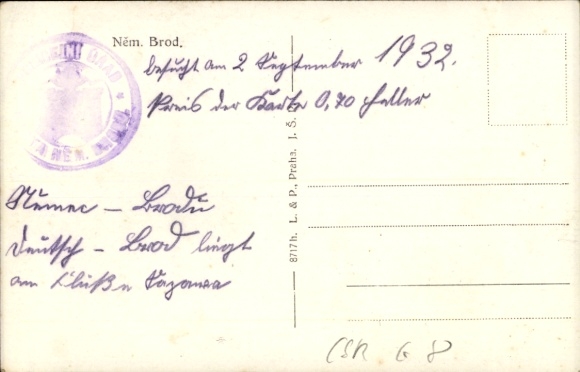 Něm. Brod.
besucht am 2 September 1932.
Preis der Karte 0,70 Heller
Němec – Brodu
Deutsch – Brod liegt
am Fluße Sazawa
8717 h. L. & P., Praha. J. Š.
ČSR G 8